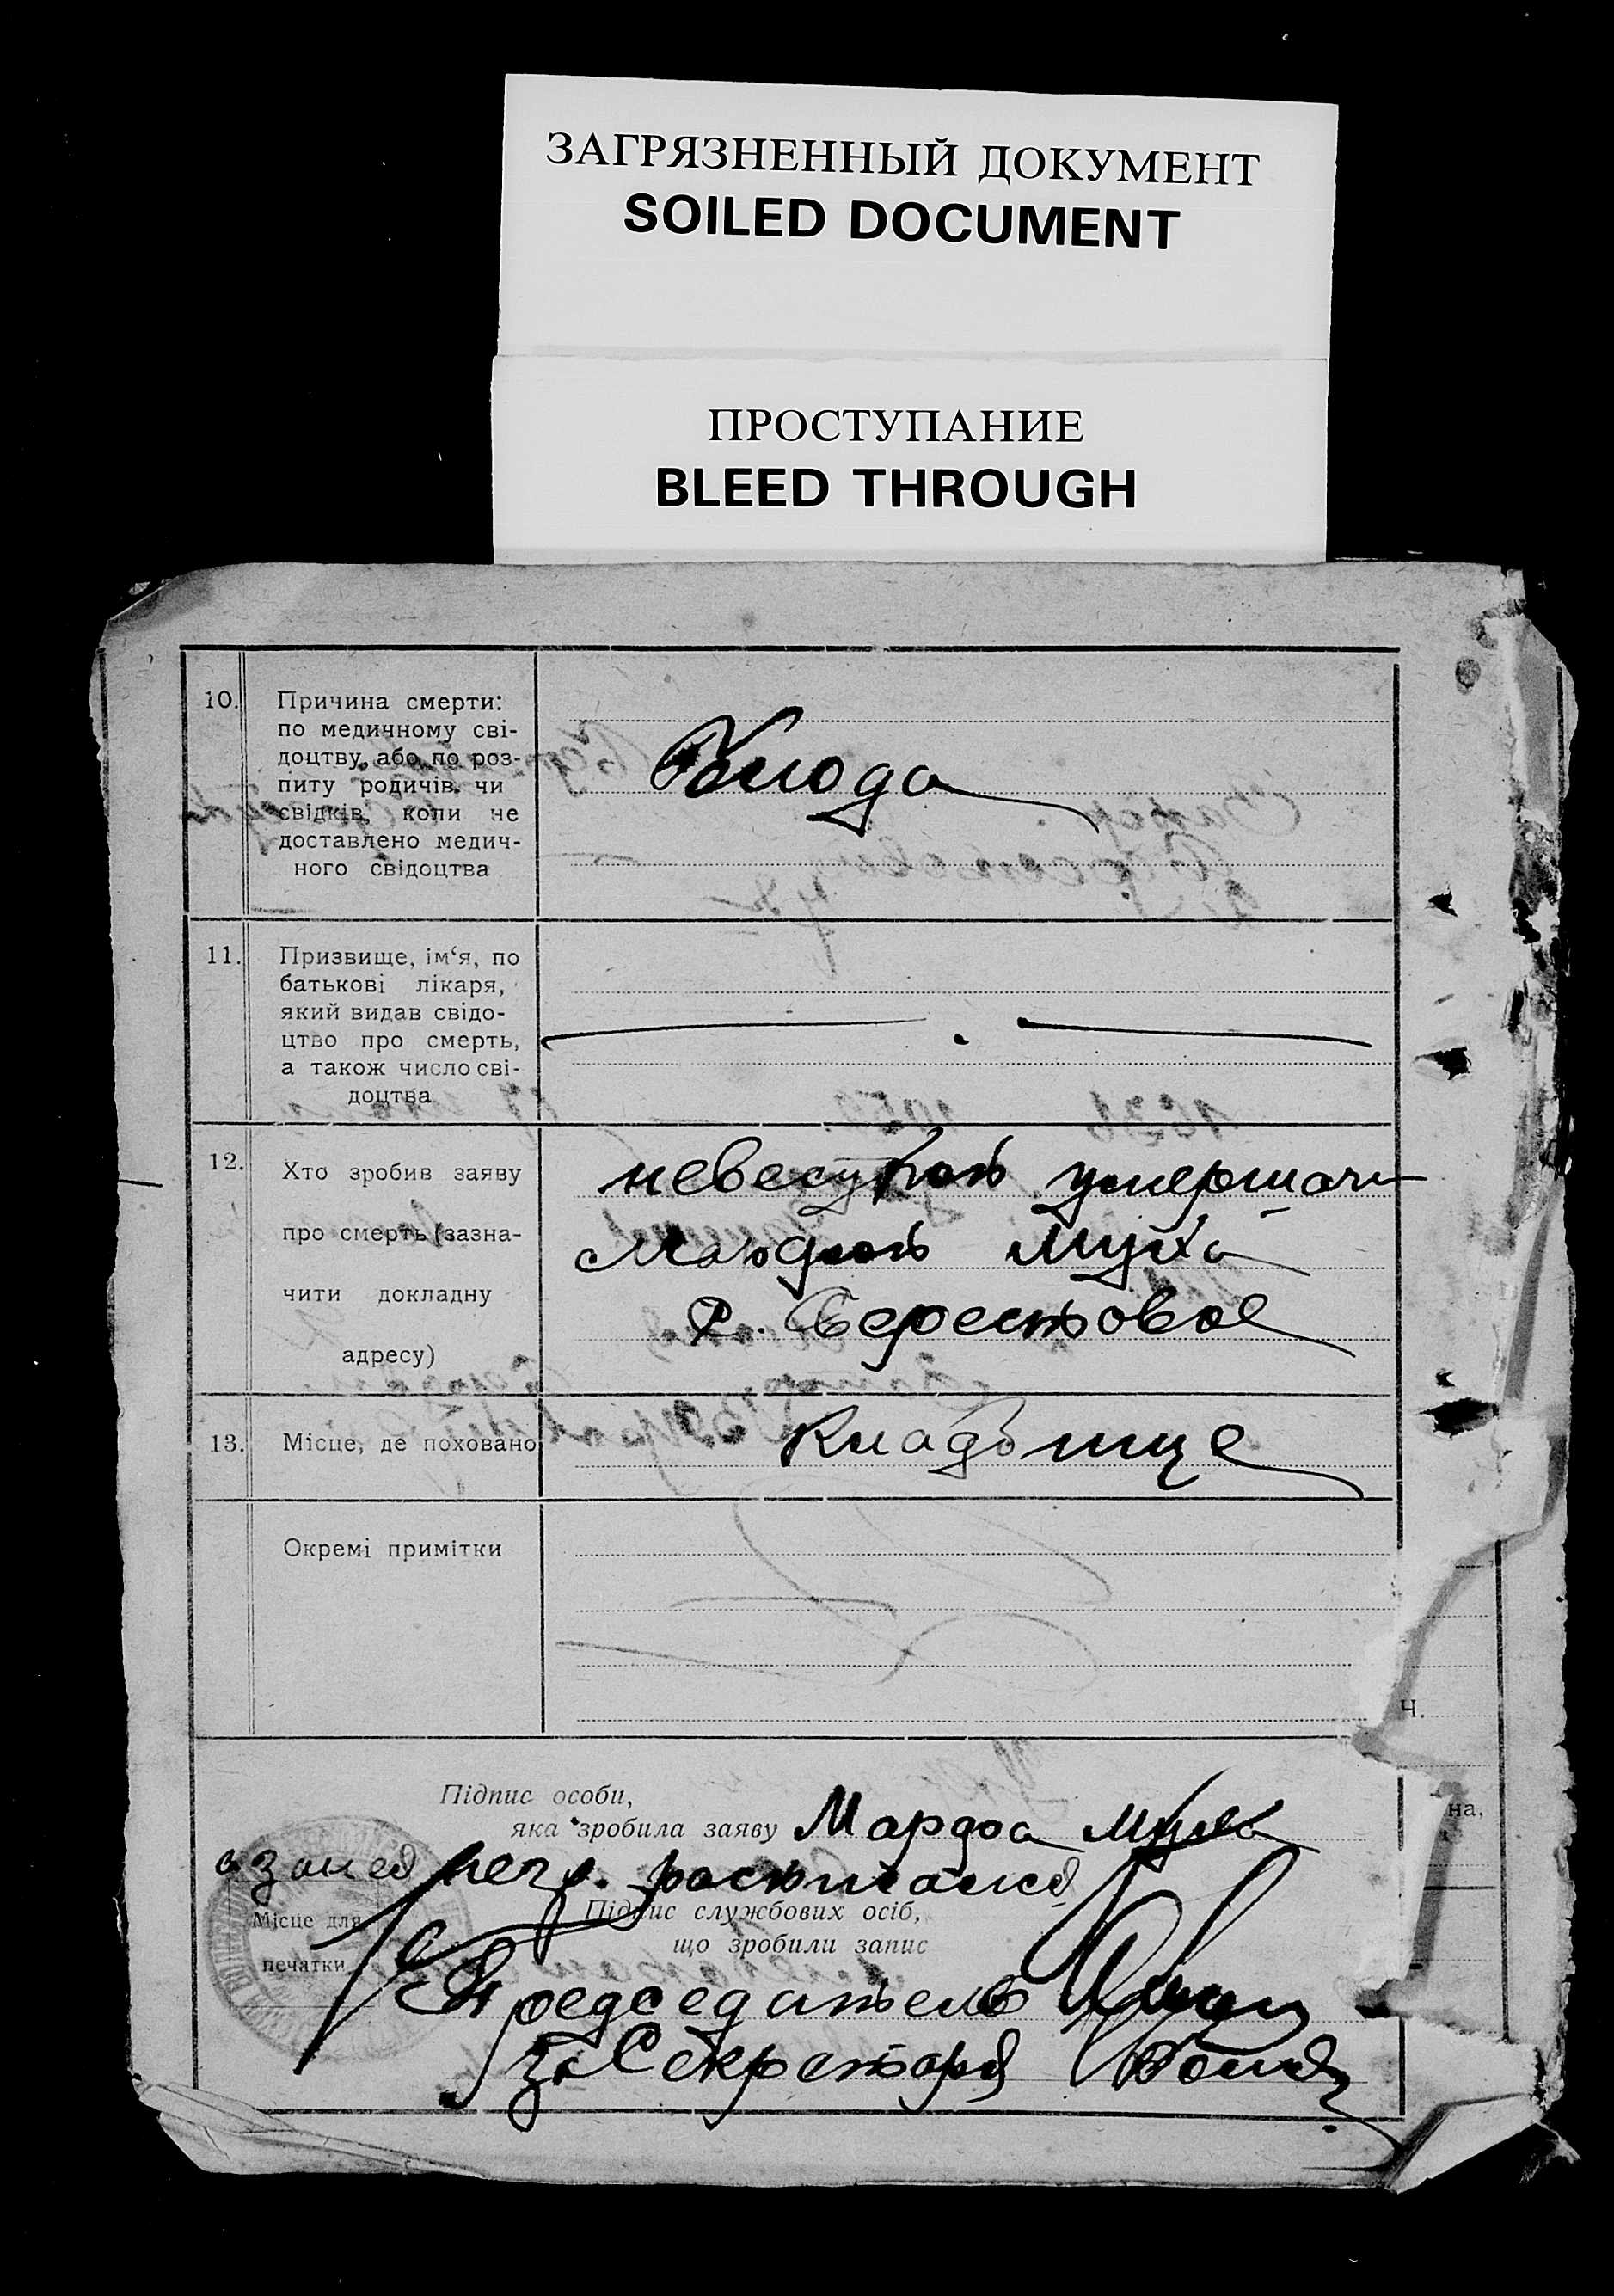 ЗАГРЯЗНЕННЫЙ ДОКУМЕНТ
SOILED DOCUMENT
ПРОСТУПАНИЕ
BLEED THROUGH
10.
Причина смерти:
по медичному сві-
доцтву, або по роз-
питу родичів, чи
свідків, коли не
доставлено медич-
ного свідоцтва
11.
Призвище, ім‘я, по
батькові лікаря,
який видав свідо-
цтво про смерть,
а також число сві-
доцтва
12.
Хто зробив заяву
про смерть (зазна-
чити докладну
адресу)
невесткой
Муха
Берестовое
13.
Місце, де поховано
Кладбище
Окремі примітки
Ч.
на,
Підпис особи,
яка зробила заяву Муха
Місце для
печатки
Підпис службових осіб,
що зробили запис
Председатель
За Секретаря